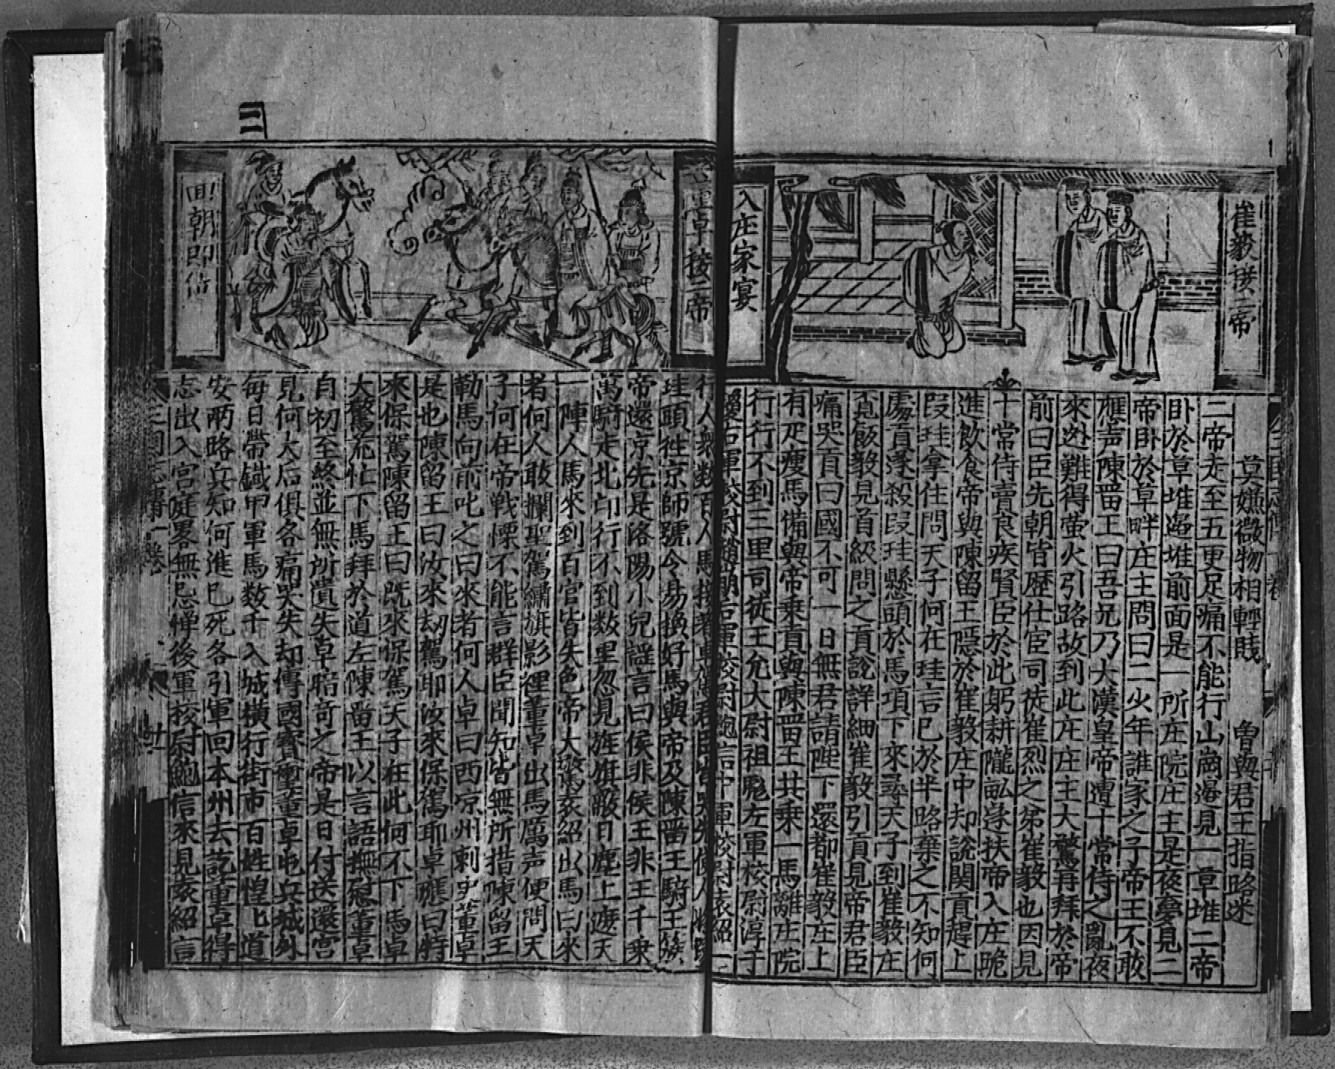 崔毅請二帝
入庄家宴
莫嫌微物相輕賤 曾與君王指路迷
二帝走至五更足痛不能行山崗邊見一草堆二帝
卧於草堆邊堆前面是一所庄院庄主是夜夢見二
帝卧於草畔庄主問曰二少年誰家之子帝王不敢
應声陳畱王曰吾兄乃大漢皇帝遭十常侍之亂夜
來迯難得螢火引路故到此庄庄主大驚再拜於帝
前曰臣先朝皆歷仕宦司徒崔烈之弟崔毅也因見
十常侍賣良疾賢臣於此躬耕隴畆遂扶帝入庄跪
進飲食帝與陳留王隱於崔毅庄中却說閔貢趕上
段珪拿住問天子何在珪言已於半路棄之不知何
處貢遂殺段珪懸頭於馬項下來尋天子到崔毅庄
覓飯毅見首級問之貢說詳細崔毅引貢見帝君臣
痛哭貢曰國不可一日無君請陛下還都崔毅庄上
有疋瘦馬備與帝乘貢與陳畱王共乘一馬離庄院
行行不到三里司徒王允大尉祖彪左軍校尉淳于
瓊右軍校尉趙萌右軍校尉鮑信中軍校尉袁紹一
董卓接二帝
回朝即位
行人衆数百人馬接着車駕君臣皆哭先使人將段
珪頭徃京師號令易換好馬與帝及陳畱王騎王簇
帝還京先是洛陽小兒謡言曰侯非侯王非王千乘
萬騎走北卬行不到数里忽見旌旗蔽日塵土遮天
一陣人馬來到百官皆失色帝大驚袁紹出馬曰來
者何人敢攔聖駕繡旗影裡董卓出馬厲声便問天
子何在帝戦慄不能言群臣聞知皆無所措陳留王
勒馬向前叱之曰來者何人卓曰西凉州刺史董卓
是也陳留王曰汝來刼駕耶汝來保駕耶卓應曰特
來保駕陳留王曰既來保駕天子在此何不下馬卓
大驚荒忙下馬拜於道左陳畱王以言語撫慰董卓
自初至終並無所遺失卓暗竒之帝是日付送還宮
見何大后俱各痛哭失却傳國寳璽董卓屯兵城外
每日帶鐵甲軍馬数千入城橫行街市百姓惶上道
安兩路兵知何進已死各引軍回本州去訖董卓得
志出入宮庭畧無忌憚後軍校尉鮑信來見袁紹言
三国志傳 一卷